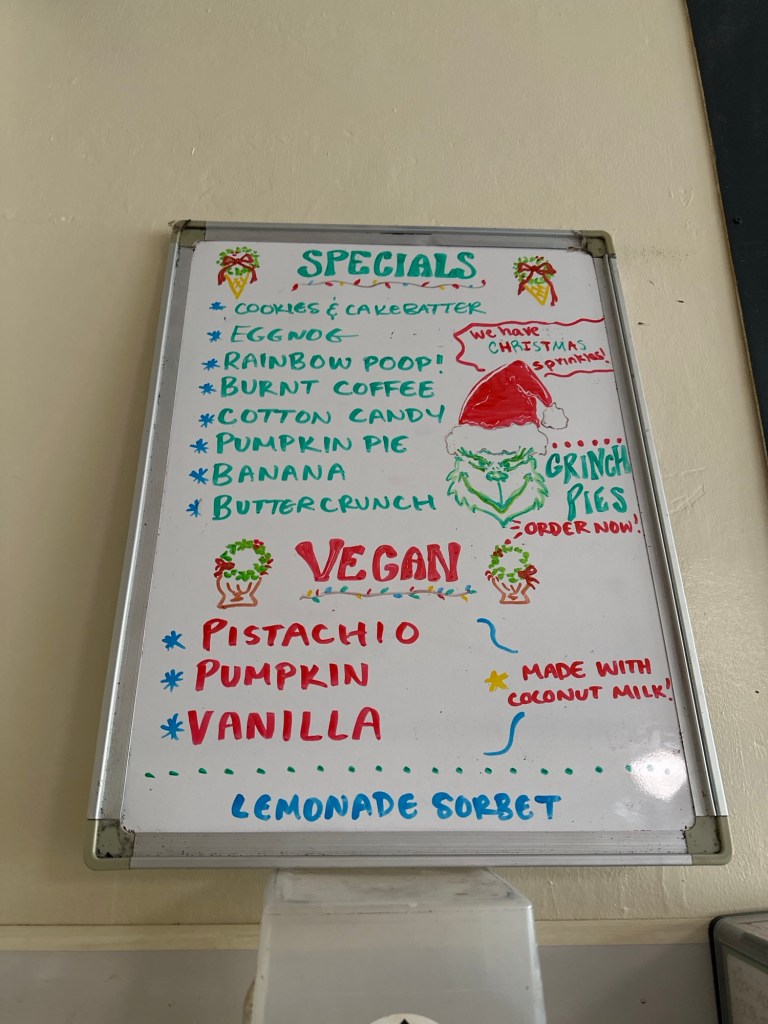 SPECIALS
* COOKIES & CAKEBATTER
* EGGNOG
* RAINBOW POOP!
* BURNT COFFEE
* COTTON CANDY
* PUMPKIN PIE
* BANANA
* BUTTERCRUNCH
We have
CHRISTMAS
sprinkles!
GRINCH
PIES
ORDER NOW!
VEGAN
* PISTACHIO
* PUMPKIN
* VANILLA
* MADE WITH
COCONUT MILK!
LEMONADE SORBET